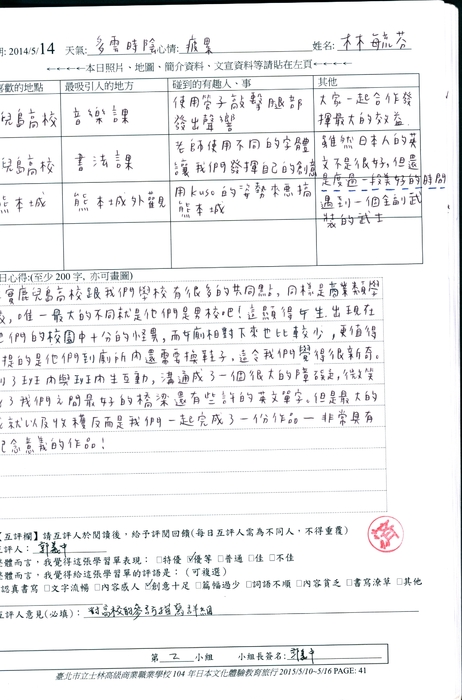 期: 2014/5/14 天氣: 多雲時陰 心情: 疲累 姓名: 林毓芬
本日照片、地圖、簡介資料、文宣資料等請貼在左頁
喜歡的地點 最吸引人的地方 碰到的有趣人、事 其他
兒島高校 音樂課 使用管子敲擊腿部 大家一起合作發
發出聲響 揮最大的效益
兒島高校 書法課 老師使用不同的字體 雖然日本人的英
讓我們發揮自己的創意 文不是很好,但還
是度過一段美好的時間
熊本城 熊本城外觀 用kuso的姿勢來惡搞 遇到一個全副武
熊本城 裝的武士
日心得:(至少 200 字, 亦可畫圖)
實鹿兒島高校跟我們學校有很多的共同點,同樣是商業類學
校,唯一最大的不同就是他們是男校吧!這顯得女生出現在
他們的校園中十分的怪異,而女廁相對下來也比較少,更值得
提的是他們到廁所內還需要換鞋子,這令我們覺得很新奇。
到了班內與班內生互動,溝通成了一個很大的障礙,微笑
成了我們之間最好的橋梁還有些許的英文單字。但是最大的
成就以及收穫反而是我們一起完成了一份作品一非常具有
紀念意義的作品!
【互評欄】請互評人於閱讀後,給予評閱回饋(每日互評人需為不同人,不得重覆)
互評人:
整體而言,我覺得這張學習單表現: □特優 ☑優等 □普通 □佳 □不佳
整體而言,我覺得給這張學習單的評語是: (可複選)
認真書寫 □文字流暢 □內容感人 ☑創意十足 □篇幅過少 □詞語不順 □內容貧乏 □書寫潦草 □其他
互評人意見(必填): 對高校的參訪描寫詳細
第 2 小組 小組長簽名:
臺北市立士林高級商業職業學校 104 年日本文化體驗教育旅行 2015/5/10~5/16 PAGE: 41